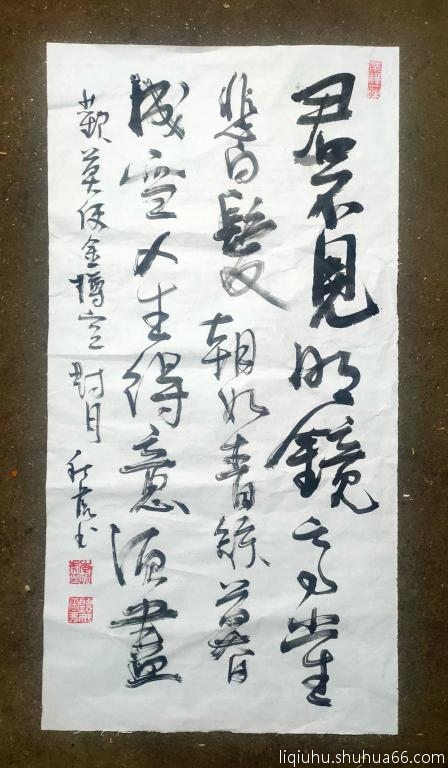 君不見明鏡高堂
悲白髮朝如青絲暮
成雪人生得意須盡
歡莫使金樽空對月 秋虎书
liqiuhu.shuhua66.com